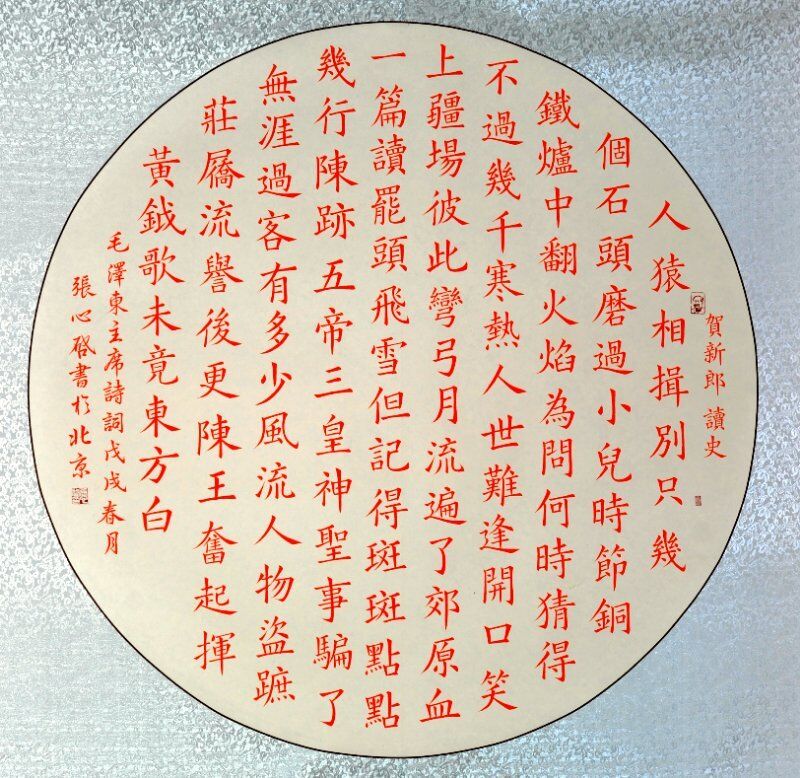 賀新郎 讀史
人猿相揖別只幾
個石頭磨過小兒時節銅
鐵爐中翻火焰為問何時猜得
不過幾千寒熱人世難逢開口笑
上疆場彼此彎弓月流遍了郊原血
一篇讀罷頭飛雪但記得斑斑點點
幾行陳跡五帝三皇神聖事騙了
無涯過客有多少風流人物盜蹠
莊屩流譽後更陳王奮起揮
黃鉞歌未竟東方白
毛澤東主席詩詞戊戌春月
張心啓書於北京